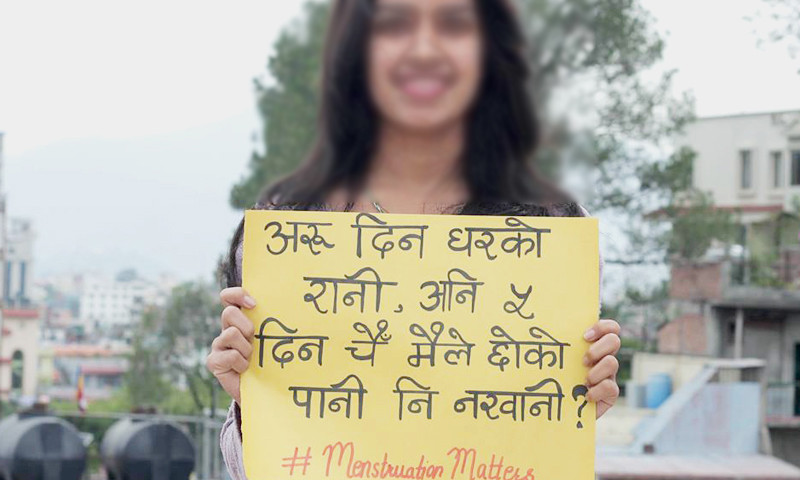 अरू दिन घरको
रानी, अनि ५
दिन चैँ मैले छोको
पानी नि नखानी?
# Menstruation Matters